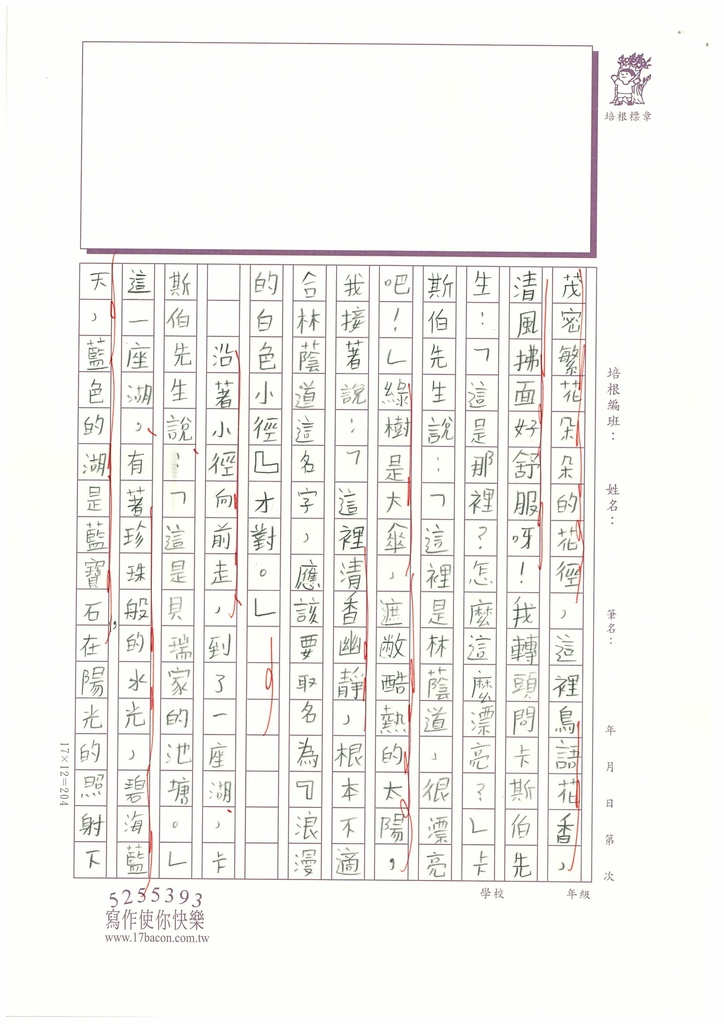 培根標章
培根編班： 姓名： 筆名： 年 月 日 第 次
學校 年級
茂密繁花朵朵的花徑，這裡鳥語花香，
清風拂面好舒服呀！我轉頭問卡斯伯先
生：「這是那裡？怎麼這麼漂亮？」卡
斯伯先生說：「這裡是林蔭道，很漂亮
吧！」綠樹是大傘，遮敝酷熱的太陽，
我接著說：「這裡清香幽靜，根本不適
合林蔭道這名字，應該要取名為『浪漫
的白色小徑』才對。」
沿著小徑向前走，到了一座湖，卡
斯伯先生說：「這是貝瑞家的池塘。」
這一座湖，有著珍珠般的水光，碧海藍
天，藍色的湖是藍寶石在陽光的照射下
17×12=204
5255393
寫作使你快樂
www.17bacon.com.tw